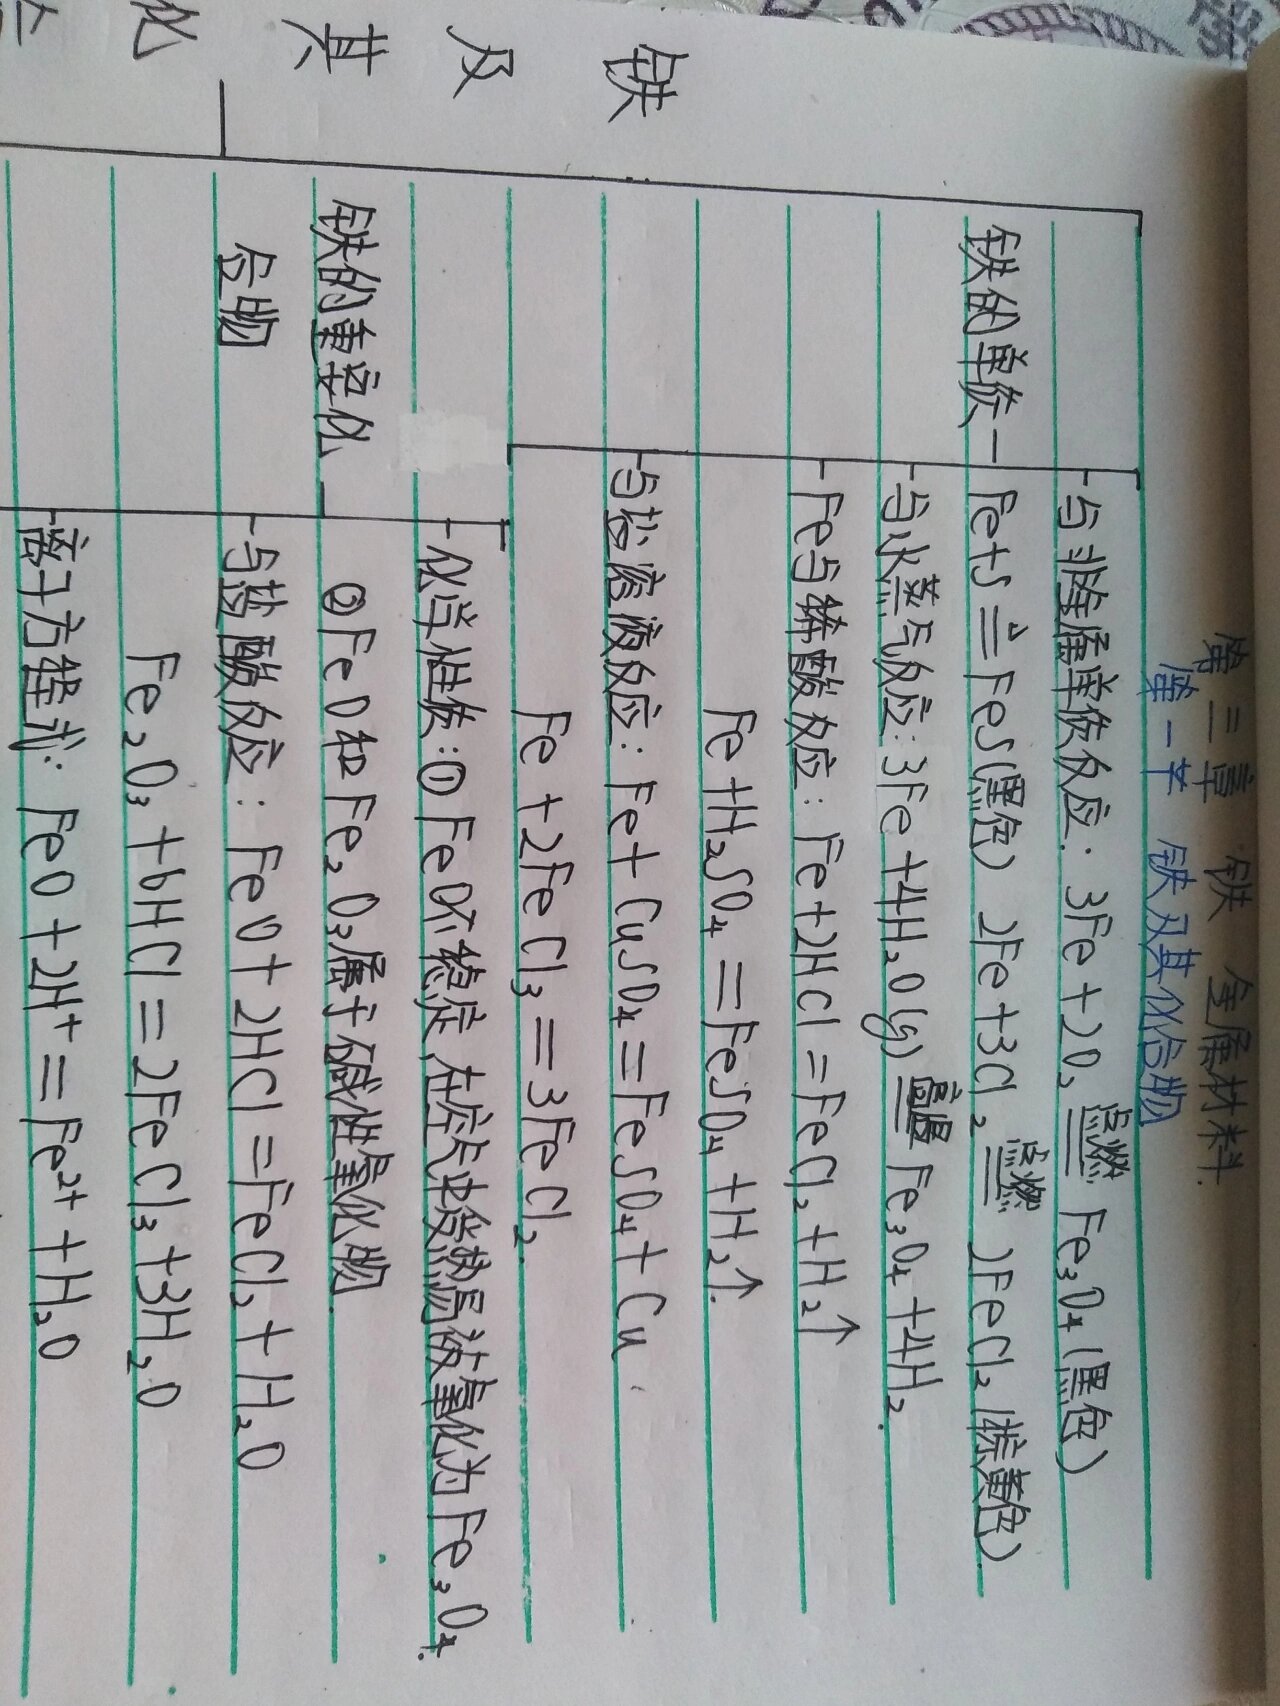 第三章 铁 金属材料
第一节 铁及其化合物
铁及其化
铁的单质
与非金属单质反应: 3Fe+2O₂ 点燃 Fe₃O₄(黑色)
Fe+S △= FeS(黑色) 2Fe+3Cl₂ 点燃 2FeCl₂(棕黄色)
与水蒸气反应: 3Fe+4H₂O(g) 高温 Fe₃O₄+4H₂.
Fe与稀酸反应: Fe+2HCl=FeCl₂+H₂↑
Fe+H₂SO₄=FeSO₄+H₂↑.
与盐溶液反应: Fe+CuSO₄=FeSO₄+Cu.
Fe+2FeCl₃=3FeCl₂.
铁的重要化
合物
化学性质:①FeO不稳定,在空气中受热易被氧化为Fe₃O₄.
②FeO和Fe₂O₃属于碱性氧化物.
与盐酸反应: FeO+2HCl=FeCl₂+H₂O
Fe₂O₃+6HCl=2FeCl₃+3H₂O
离子方程式: FeO+2H⁺=Fe²⁺+H₂O